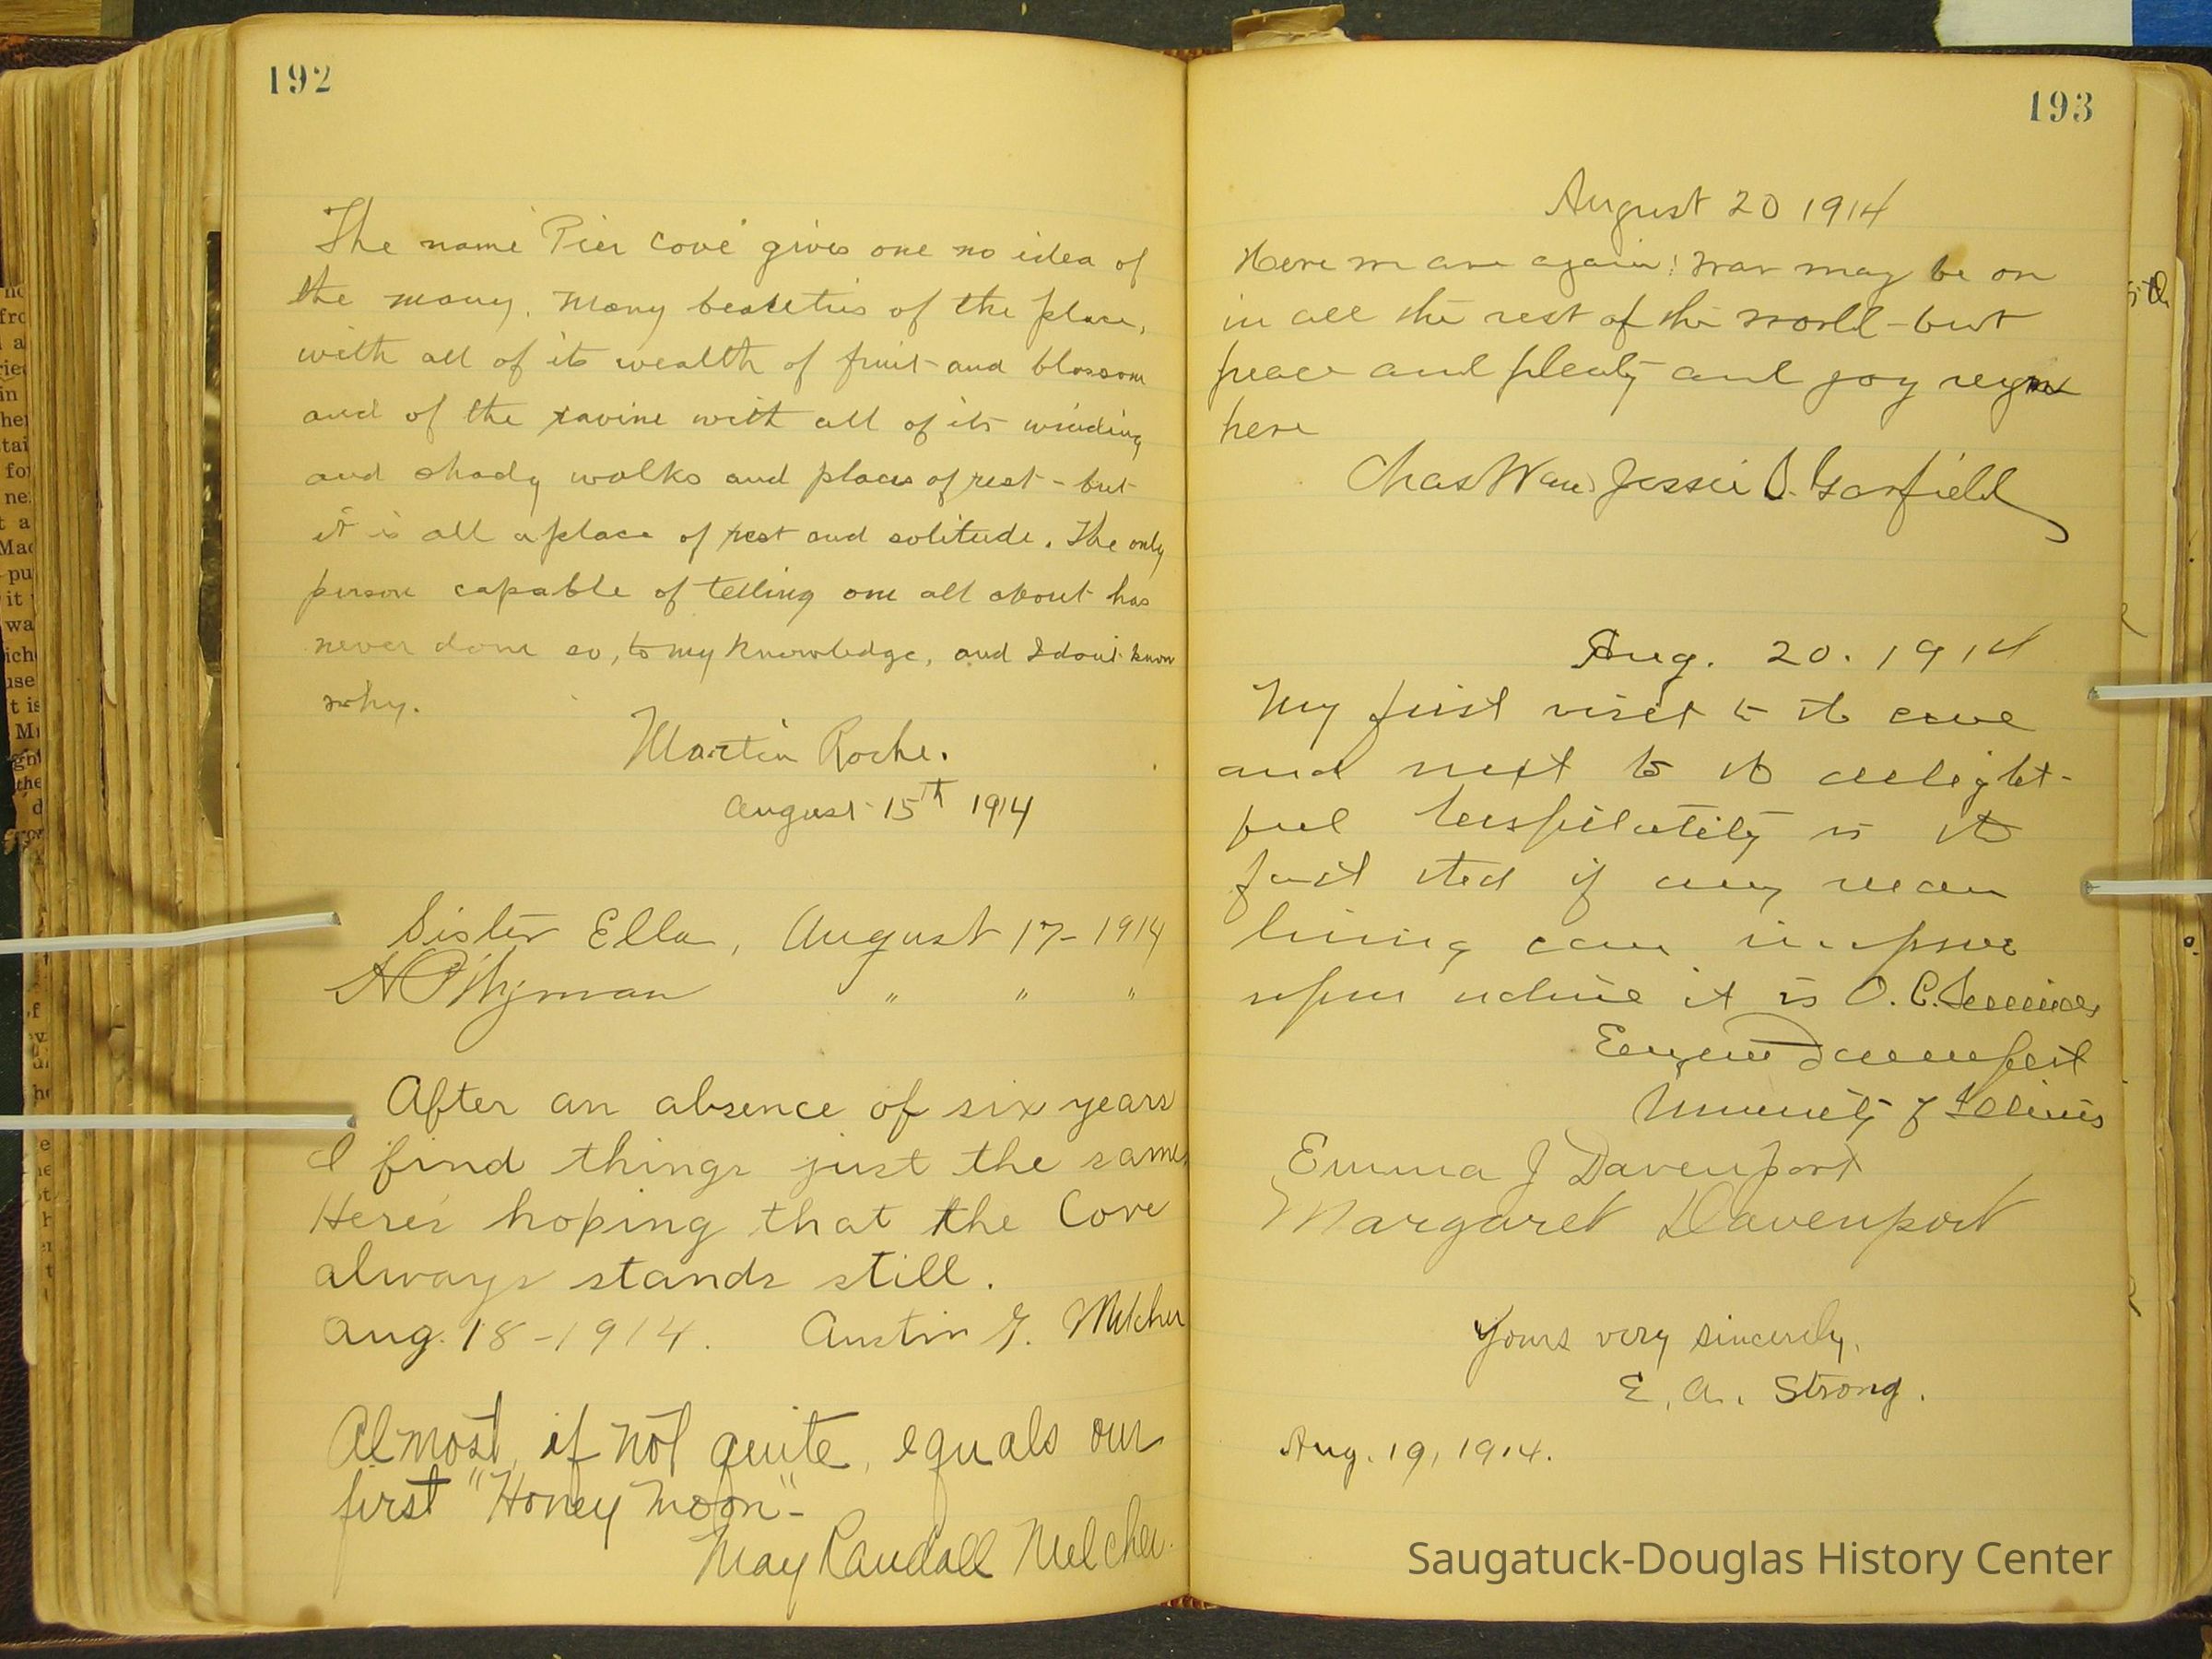 192
The name 'Pier Cove' gives one no idea of
the many, many beauties of the place,
with all of its wealth of fruit and blossom
and of the ravine with all of its winding
and shady walks and places of rest - but
it is all a place of rest and solitude. The only
person capable of telling one all about has
never done so, to my knowledge, and I don't know
why.
Martin Roche.
August 15th 1914
Sister Ella, August 17 - 1914
Wyman " " "
After an absence of six years
I find things just the same.
Here's hoping that the Cove
always stands still.
Aug. 18 - 1914. Austin G. Melcher
Almost, if not quite, equals our
first "Honey Moon" -
May Randall Melcher.
193
August 20 1914
Here we are again! War may be on
in all the rest of the world - but
peace and plenty and joy reign
here
Chas W and Jessie S. Garfield
Aug. 20. 1914
My first visit to the cove
and next to its delight-
ful hospitality is the
fact that if any man
living can improve
upon nature it is O. C. Simonds
Eugene Davenport
University of Illinois
Emma J Davenport
Margaret Davenport
Yours very sincerely,
E. A. Strong.
Aug. 19, 1914.
Saugatuck-Douglas History Center